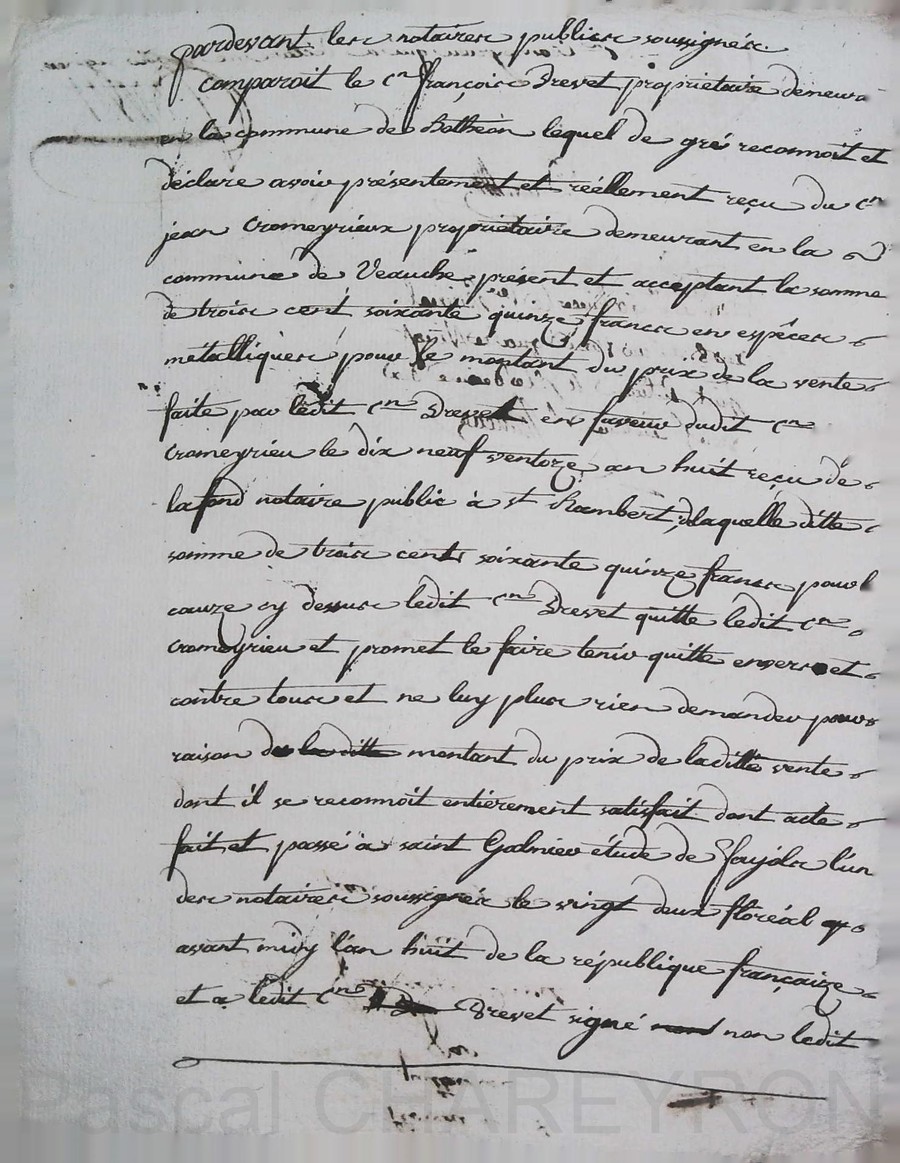 pardevant les notaires publics soussignés
comparoit le Cn françois Drevet propriétaire demeurt
en la commune de Bothéon lequel de gré reconnoit et
déclare avoir présentement et réellement reçu du Cn
jean Cromeyrieux propriétaire demeurant en la
commune de Veauche présent et acceptant la somme
de trois cent soixante quinze francs en espêces
métalliques pour le montant du prix de la vente
faite par ledit Cn Drevet en faveur dudit Cn
Cromeyrieu le dix neuf ventoze an huit reçu de
lafond notaire public à st Rambert, laquelle ditte
somme de trois cents soixante quinze francs pour l
cauze cy dessus ledit Cn Drevet quitte ledit Cn
Cromeyrieu et promet le faire tenir quitte envers et
contre tous et ne luy plus rien demander pour
raison du montant du prix de laditte vente
dont il se reconnoit entièrement satisfait dont acte
fait et passé à saint Galmier étude de Fayols l'un
des notaires soussignés le vingt deux floréal
avant midy l'an huit de la république françaize
et a ledit Cn Drevet signé non ledit
Pascal CHAREYRON